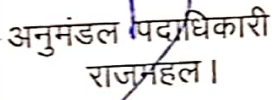 अनुमंडल पदाधिकारी
राजमहल।